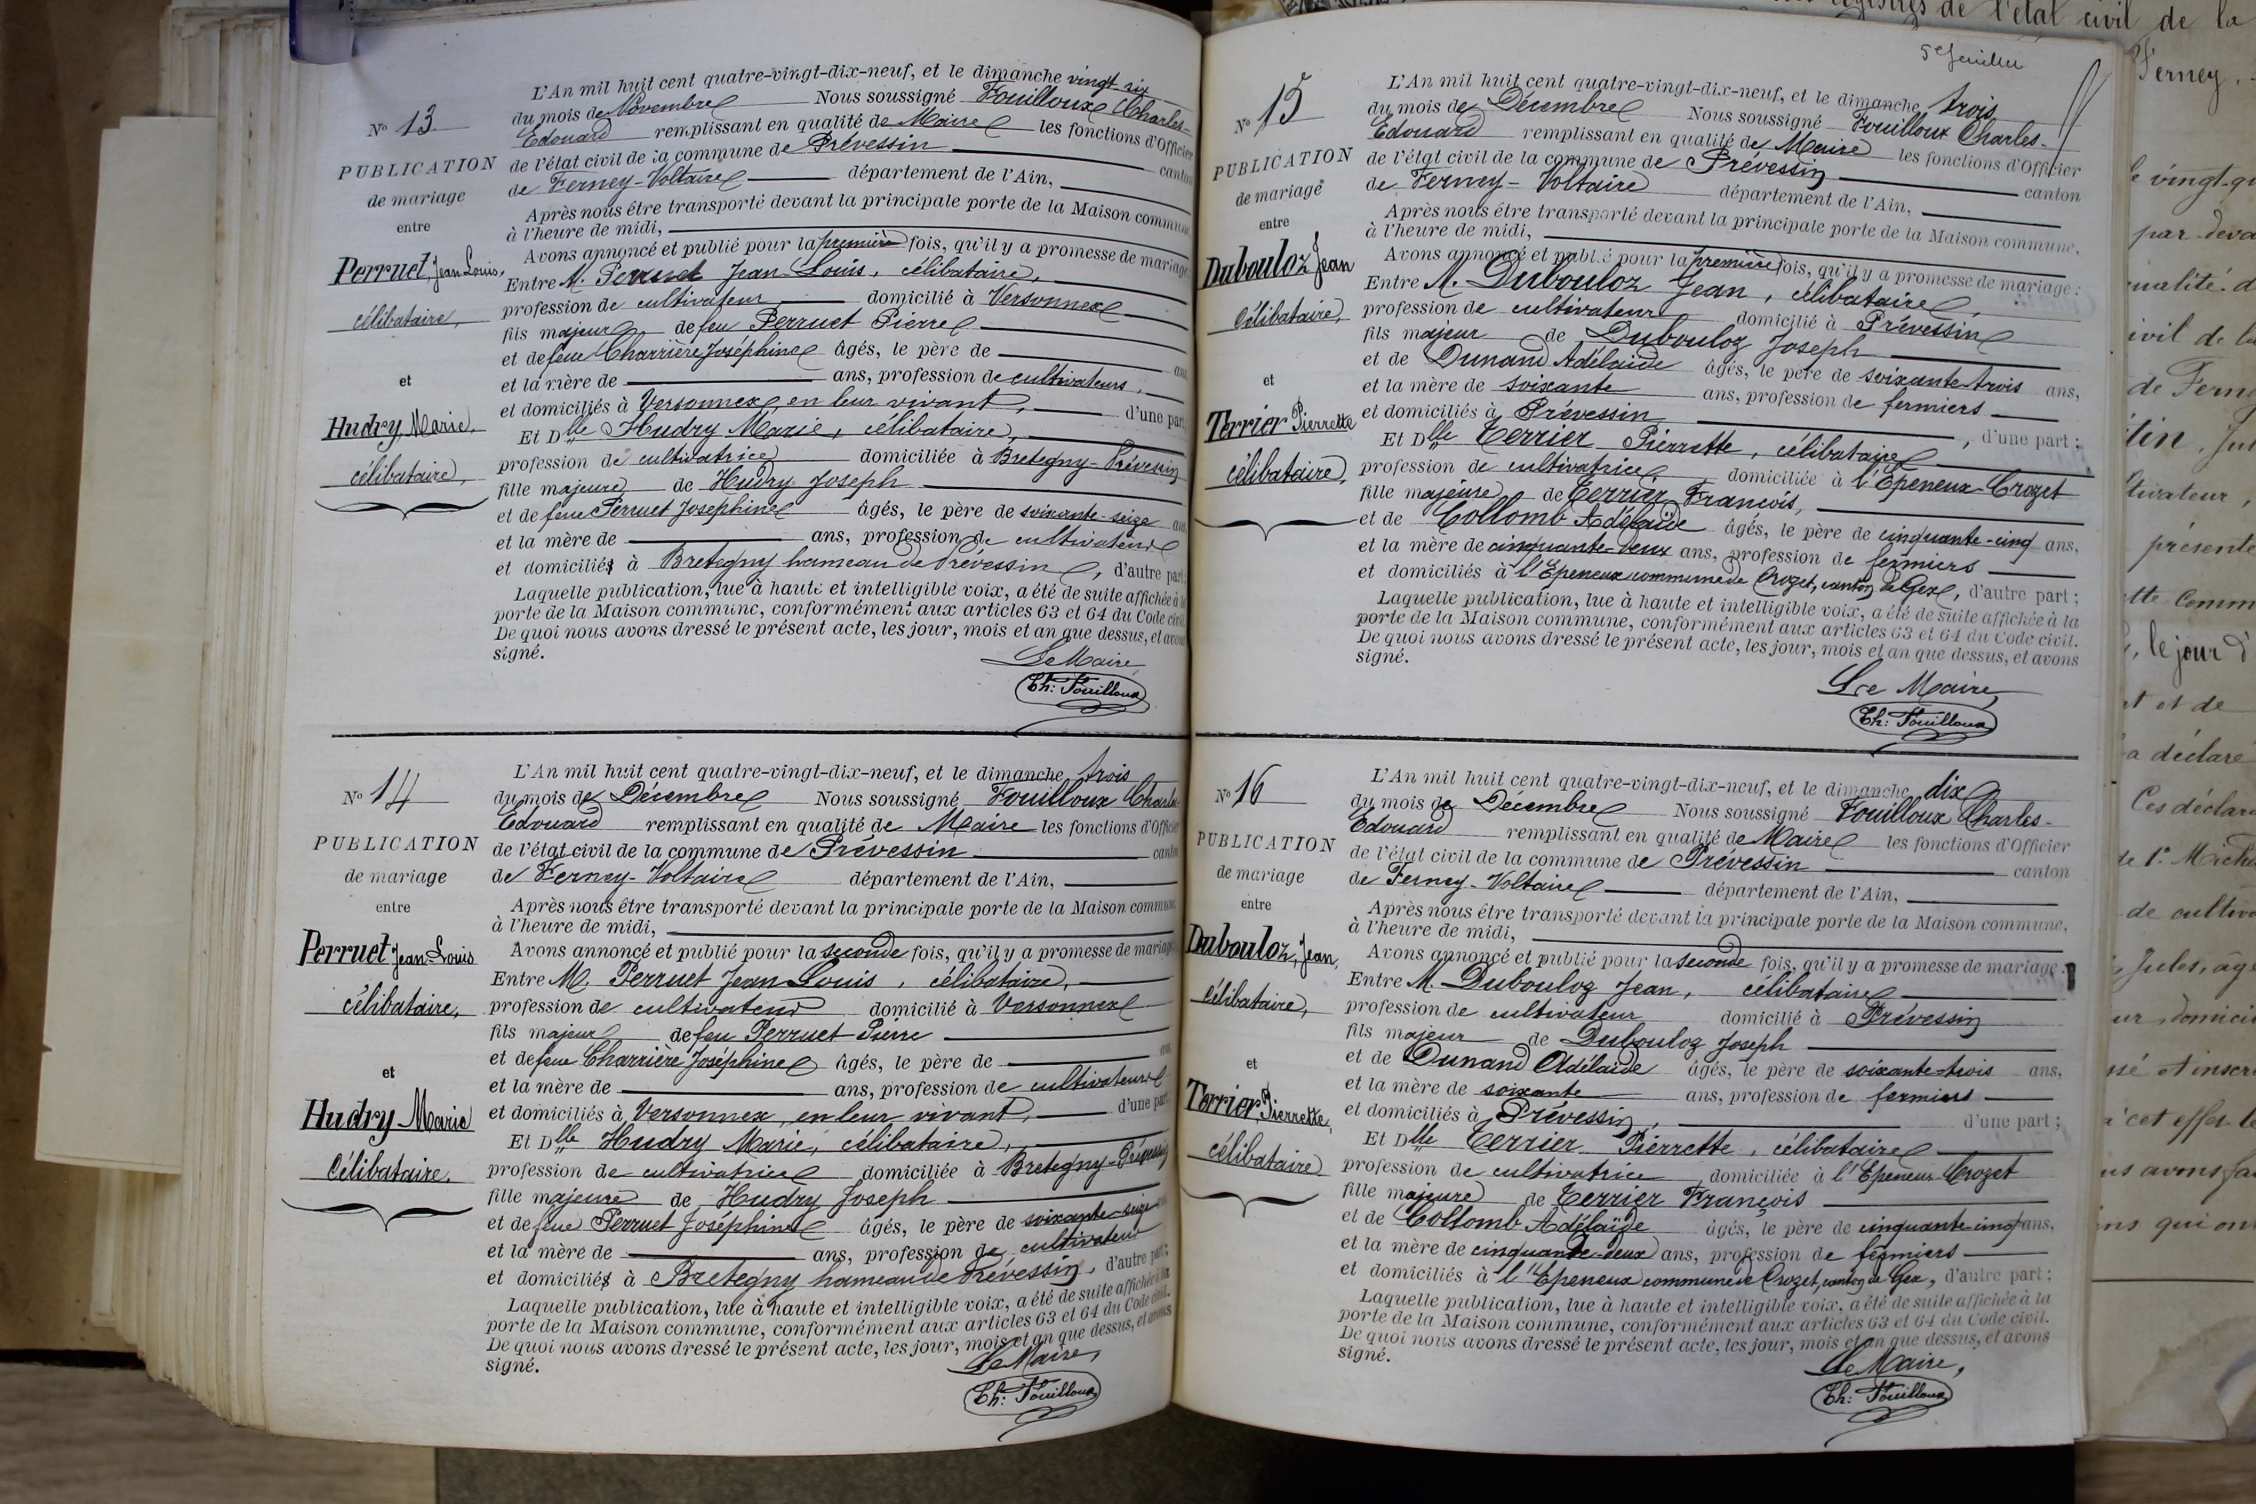 N° 13
PUBLICATION
de mariage
entre
Perruet Jean Louis,
célibataire,
et
Hudry Marie,
célibataire,
L'An mil huit cent quatre-vingt-dix-neuf, et le dimanche vingt six
du mois de Novembre Nous soussigné Fouilloux Charles-
Edouard remplissant en qualité de Maire les fonctions d'Officier
de l'état civil de la commune de Prévessin canton
de Ferney-Voltaire département de l'Ain,
Après nous être transporté devant la principale porte de la Maison commune,
à l'heure de midi,
Avons annoncé et publié pour la première fois, qu'il y a promesse de mariage
Entre M. Perruet Jean Louis, célibataire,
profession de cultivateur domicilié à Versonnex
fils majeur de feu Perruet Pierre
et de feue Charrière Joséphine âgés, le père de ans
et la mère de ans, profession de cultivateurs,
et domiciliés à Versonnex, en leur vivant, d'une part
Et Dlle Hudry Marie, célibataire,
profession de cultivatrice domiciliée à Bretegny-Prévessin
fille majeure de Hudry Joseph
et de feue Perruet Joséphine âgés, le père de soixante-seize ans
et la mère de ans, profession de cultivateur
et domiciliés à Bretegny hameau de Prévessin, d'autre part;
Laquelle publication, lue à haute et intelligible voix, a été de suite affichée à la
porte de la Maison commune, conformément aux articles 63 et 64 du Code civil.
De quoi nous avons dressé le présent acte, les jour, mois et an que dessus, et avons
signé.
Le Maire,
Ch: Fouilloux
N° 14
PUBLICATION
de mariage
entre
Perruet Jean-Louis
célibataire,
et
Hudry Marie
célibataire,
L'An mil huit cent quatre-vingt-dix-neuf, et le dimanche trois
du mois de Décembre Nous soussigné Fouilloux Charles-
Edouard remplissant en qualité de Maire les fonctions d'Officier
de l'état civil de la commune de Prévessin canton
de Ferney-Voltaire département de l'Ain,
Après nous être transporté devant la principale porte de la Maison commune,
à l'heure de midi,
Avons annoncé et publié pour la seconde fois, qu'il y a promesse de mariage
Entre M. Perruet Jean Louis, célibataire,
profession de cultivateur domicilié à Versonnex
fils majeur de feu Perruet Pierre
et de feue Charrière Joséphine âgés, le père de ans
et la mère de ans, profession de cultivateurs
et domiciliés à Versonnex, en leur vivant, d'une part
Et Dlle Hudry Marie, célibataire,
profession de cultivatrice domiciliée à Bretegny-Prévessin
fille majeure de Hudry Joseph
et de feue Perruet Joséphine âgés, le père de soixante-seize ans
et la mère de ans, profession de cultivateur
et domiciliés à Bretegny hameau de Prévessin, d'autre part;
Laquelle publication, lue à haute et intelligible voix, a été de suite affichée à la
porte de la Maison commune, conformément aux articles 63 et 64 du Code civil.
De quoi nous avons dressé le présent acte, les jour, mois et an que dessus, et avons
signé.
Le Maire,
Ch: Fouilloux
N° 15
PUBLICATION
de mariage
entre
Dubouloz Jean
célibataire,
et
Terrier Pierrette
célibataire,
L'An mil huit cent quatre-vingt-dix-neuf, et le dimanche trois
du mois de Décembre Nous soussigné Fouilloux Charles-
Edouard remplissant en qualité de Maire les fonctions d'Officier
de l'état civil de la commune de Prévessin canton
de Ferney-Voltaire département de l'Ain,
Après nous être transporté devant la principale porte de la Maison commune,
à l'heure de midi,
Avons annoncé et publié pour la première fois, qu'il y a promesse de mariage:
Entre M. Dubouloz Jean, célibataire,
profession de cultivateur domicilié à Prévessin
fils majeur de Dubouloz Joseph
et de Dunand Adélaïde âgés, le père de soixante-trois ans,
et la mère de soixante ans, profession de fermiers
et domiciliés à Prévessin, d'une part;
Et Dlle Terrier Pierrette, célibataire
profession de cultivatrice domiciliée à l'Epeneux-Crozet
fille majeure de Terrier François,
et de Collomb Adélaïde âgés, le père de cinquante-cinq ans,
et la mère de cinquante-deux ans, profession de fermiers
et domiciliés à l'Epeneux commune de Crozet, canton de Gex, d'autre part;
Laquelle publication, lue à haute et intelligible voix, a été de suite affichée à la
porte de la Maison commune, conformément aux articles 63 et 64 du Code civil.
De quoi nous avons dressé le présent acte, les jour, mois et an que dessus, et avons
signé.
Le Maire,
Ch: Fouilloux
N° 16
PUBLICATION
de mariage
entre
Dubouloz, Jean,
célibataire,
et
Terrier, Pierrette,
célibataire
L'An mil huit cent quatre-vingt-dix-neuf, et le dimanche dix
du mois de Décembre Nous soussigné Fouilloux Charles-
Edouard remplissant en qualité de Maire les fonctions d'Officier
de l'état civil de la commune de Prévessin canton
de Ferney-Voltaire département de l'Ain,
Après nous être transporté devant la principale porte de la Maison commune,
à l'heure de midi,
Avons annoncé et publié pour la seconde fois, qu'il y a promesse de mariage:
Entre M. Dubouloz Jean, célibataire
profession de cultivateur domicilié à Prévessin
fils majeur de Dubouloz Joseph
et de Dunand Adélaïde âgés, le père de soixante-trois ans,
et la mère de soixante ans, profession de fermiers
et domiciliés à Prévessin, d'une part;
Et Dlle Terrier Pierrette, célibataire
profession de cultivatrice, domiciliée à l'Epeneux-Crozet
fille majeure de Terrier François
et de Collomb Adélaïde âgés, le père de cinquante-cinq ans,
et la mère de cinquante-deux ans, profession de fermiers
et domiciliés à l'Epeneux commune de Crozet, canton de Gex, d'autre part;
Laquelle publication, lue à haute et intelligible voix, a été de suite affichée à la
porte de la Maison commune, conformément aux articles 63 et 64 du Code civil.
De quoi nous avons dressé le présent acte, les jour, mois et an que dessus, et avons
signé.
Le Maire,
Ch: Fouilloux
registres de l'état civil de la
Ferney,
le vingt-qu
par deva
qualité d
ivil de la
de Fern
présente
tte comm
le jour d
et de
a déclaré
Ces déclara
de cultiva
Jules, âgé
ur, domici
sé et inscri
à cet effet le